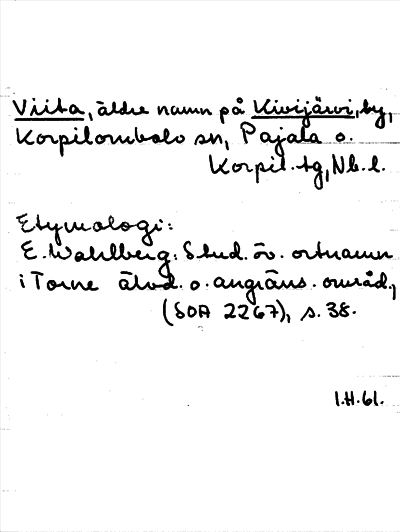 Viita, äldre namn på Kivijärvi, by,
Korpilombolo sn, Pajala o.
Korpil. tg, Nb. l.
Etymologi:
E. Wahlberg: Stud. öv. ortnamn
i Torne älvd. o. angräns. områd.,
(SOA 2267), s. 38.
I.H.61.